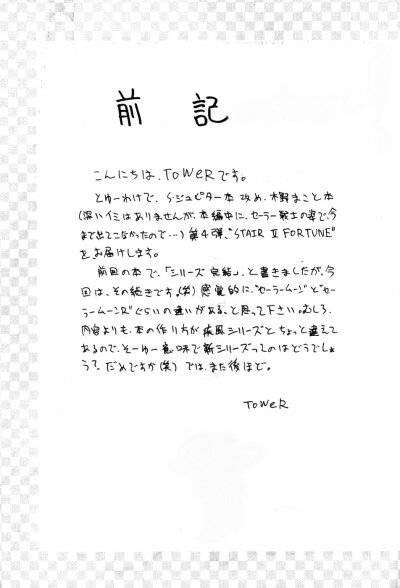 前記
こんにちは、ToWeRです。
とゆーわけで、S・ジュピター本改め、木野まこと本
(深いイミはありませんが、本編中に、セーラー戦士の姿で、今
まで出てこなかったので…)第4弾、"STAIR II FORTUNE"
をお届けします。
前回の本で、「シリーズ完結」、と書きましたが、今
回は、その続きです。(笑)感覚的に、"セーラームーン"と"セ
ーラームーンR"ぐらいの違いがある、と思って下さい。むしろ、
内容よりも、本の作り方が疾風シリーズとちょっと違えて
あるので、そーゆー意味で新シリーズってのはどうでしょ
う?だめですか(笑)では、また後ほど。
ToWeR